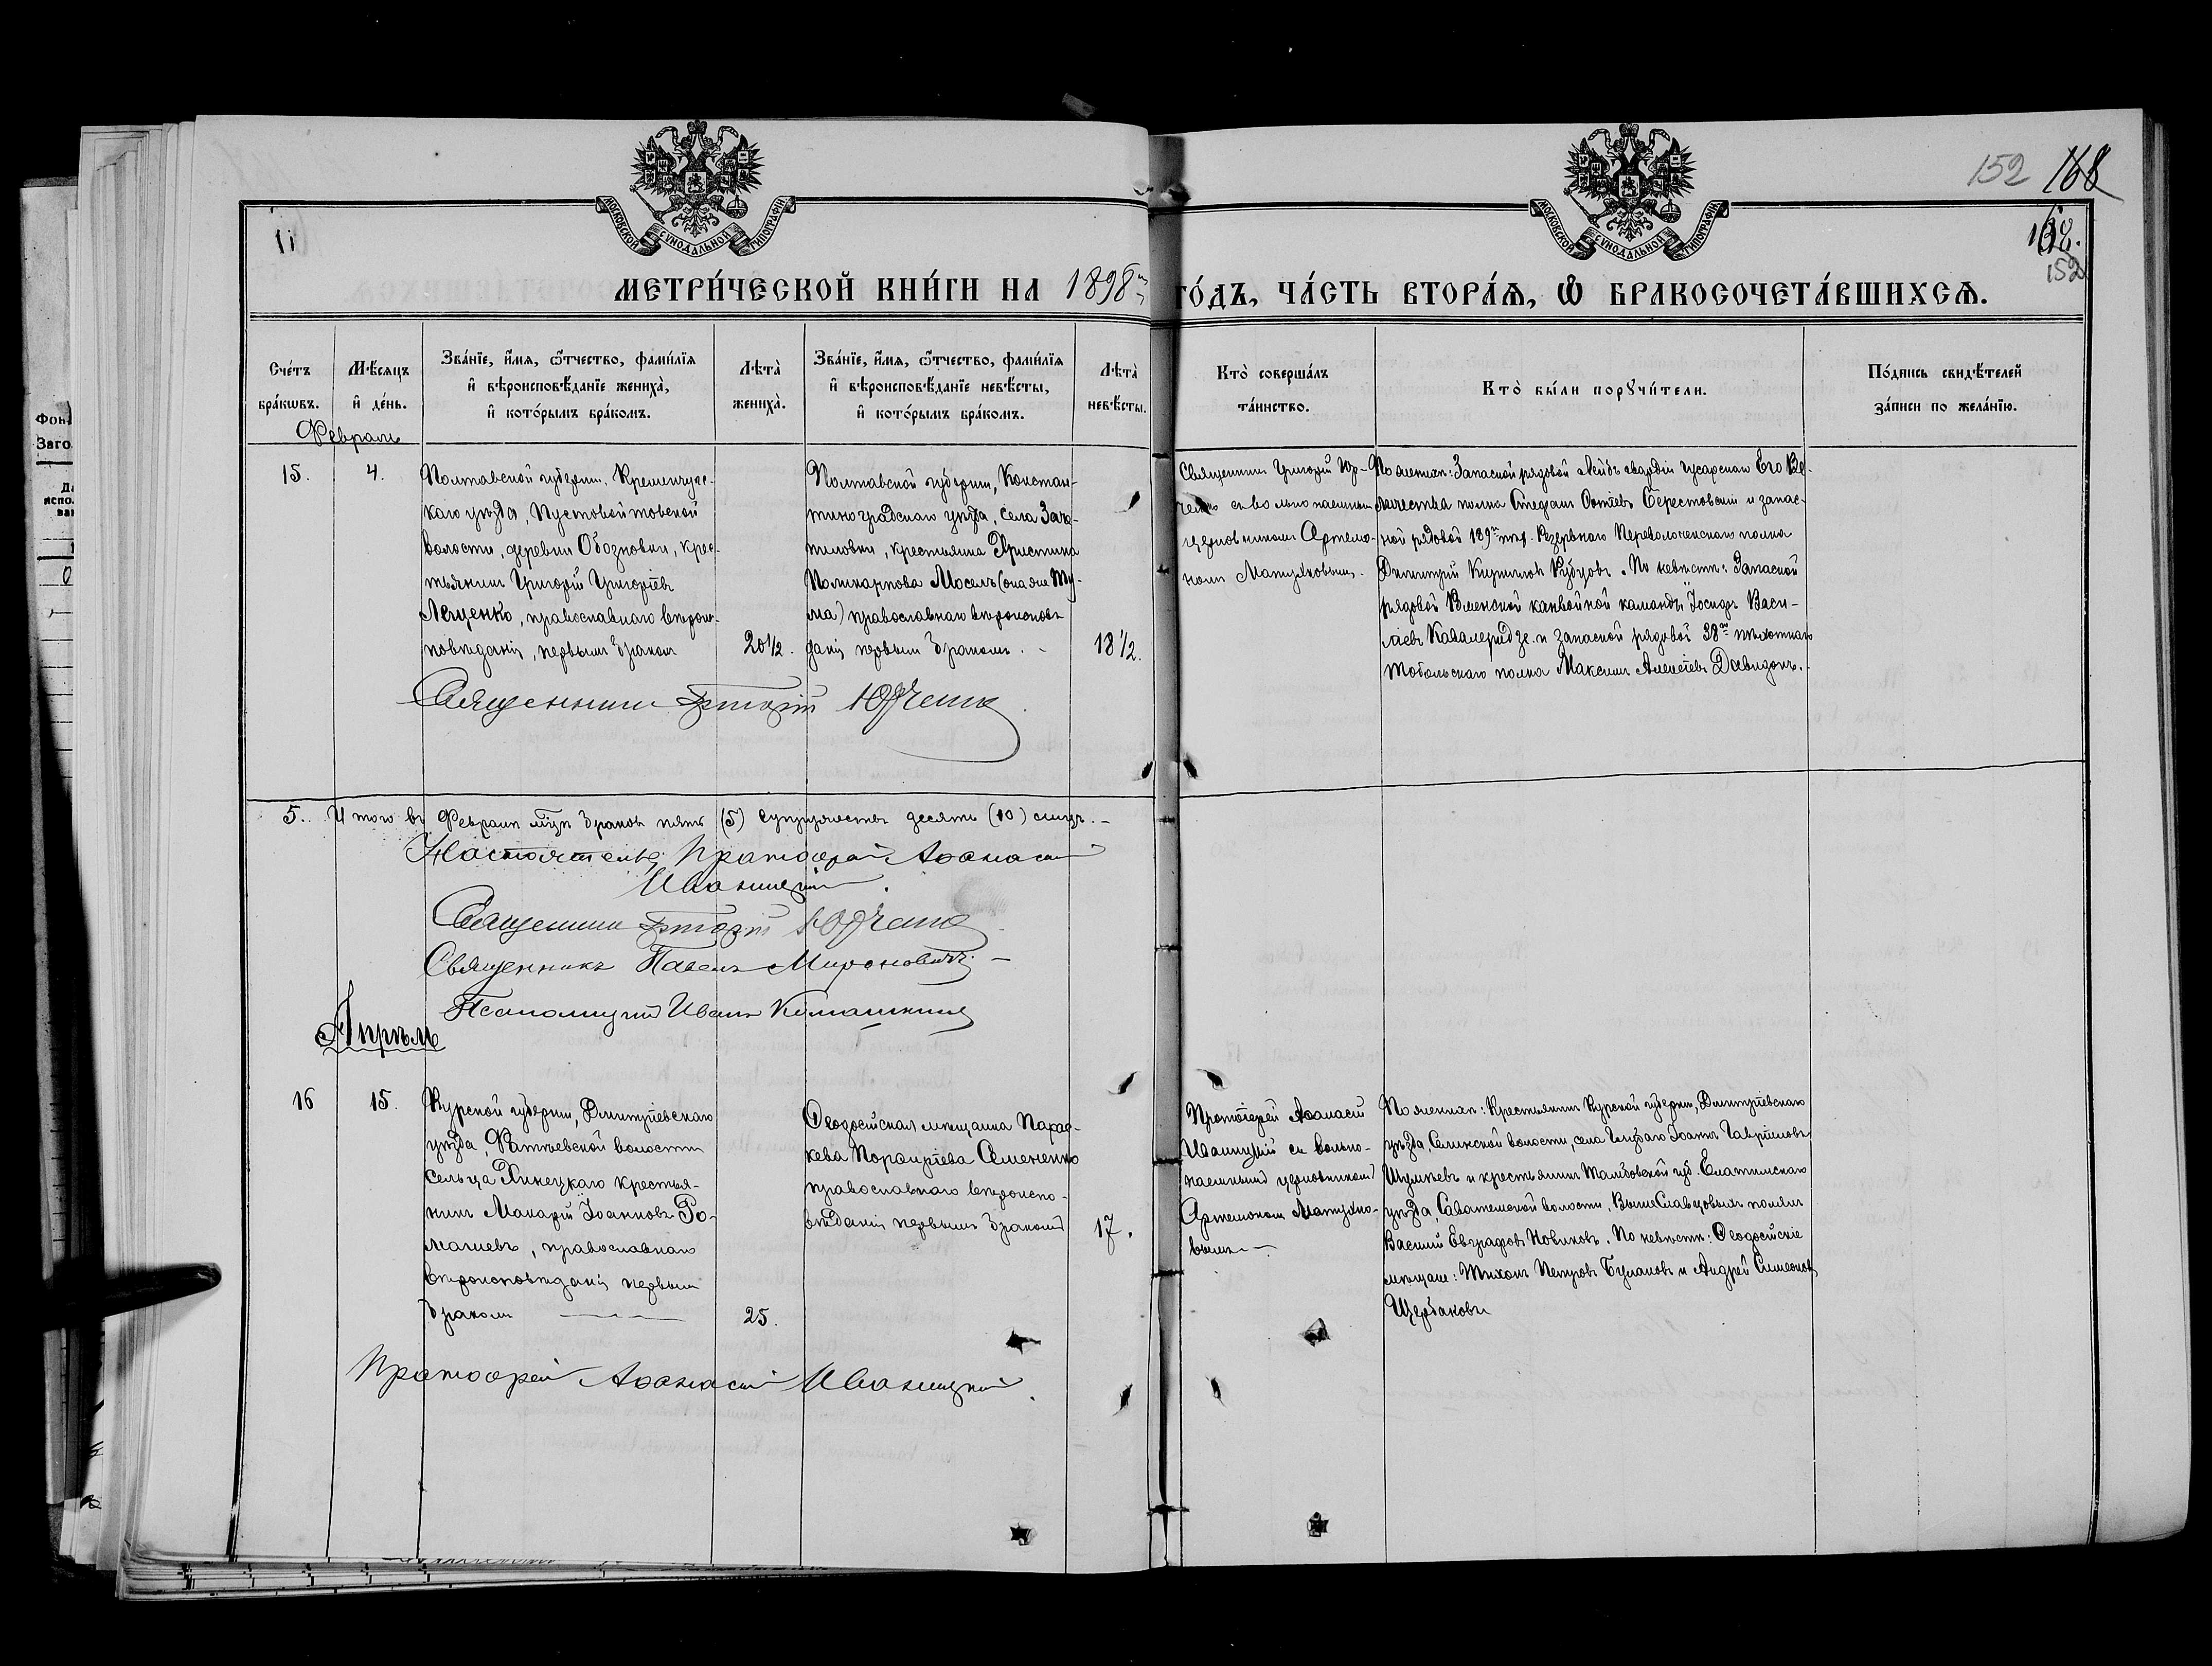 152 168
168.
152
11
МОСКОВСКОЙ СУНОДАЛЬНОЙ ТИПОГРАФІИ
МОСКОВСКОЙ СУНОДАЛЬНОЙ ТИПОГРАФІИ
МЕТРИ́ЧЕСКОЙ КНИ́ГИ НА 1898й ГО́ДЪ, ЧА́СТЬ ВТОРА́Ѧ, Ѡ҆ БРАКОСОЧЕТА́ВШИХСѦ.
Сче́тъ
бра́кѡвъ.
Мѣ́сяцъ
и҆ де́нь.
Зва́нїе, и҆́мя, ѻ҆́тчество, фами́лїя
и҆ вѣроисповѣ́данїе жениха̀,
и҆ кото́рымъ бра́комъ.
Лѣта̀
жениха̀.
Зва́нїе, и҆́мя, ѻ҆́тчество, фами́лїя
и҆ вѣроисповѣ́данїе невѣ́сты,
и҆ кото́рымъ бра́комъ.
Лѣта̀
невѣ́сты.
Кто̀ соверша́лъ
та́инство.
Кто̀ бы́ли порꙋчи́тели.
По́дпись свидѣ́телей
за́писи по жела́нїю.
Февраль
15.
4.
Полтавской губерніи, Кременчугс-
каго уѣзда, Пустовойтовской
волости, деревни Обозновки, крес-
тьянинъ Григорій Григоріевъ
Лещенко, православнаго вѣроис-
повѣданія, первымъ бракомъ
20 1/2.
Полтавской губерніи, Констан-
тиноградскаго уѣзда, села Зача-
пиловки, крестьянка Христина
Поликарпова Моселъ (она же Ту-
ма) православнаго вѣроисповѣ
данія первымъ бракомъ. -
18 1/2.
Священникъ Григорій Юр-
ченко съ вольнонаемнымъ
церковникомъ Артемо-
номъ Матузковымъ.
По женихѣ: Запасной рядовой Лейбъ гвардіи гусарскаго Его Ве-
личества полка Стефанъ Фотіевъ Берестовскій и запас-
ной рядовой 189го пѣх. Резервнаго Переволоченскаго полка
Димитрій Кирилловъ Кубуовъ. По невѣстѣ: Запасной
рядовой Виленской канвойной каманды Іосифъ Васи-
ліевъ Кавалеридзе и запасной рядовой 38го пѣхотнаго
Тобольскаго полка Максимъ Алексіевъ Давидовъ.
Священникъ Григорій Юрченко
5. Итого въ Февралѣ мѣцѣ браковъ пять (5) супружествъ десять (10) лицъ. -
Настоятель, Протоіерей Аѳанасій
Иваницкій.
Священникъ Григорій Юрченко
Священникъ Павелъ Мироновичъ. -
Псаломщикъ Иванъ Комашкинъ
Апрѣль
16
15.
Курской губерніи, Дмитріевскаго
уѣзда, Фатѣевской волости
сельца Хинецкаго крестья-
нинъ Макарій Іоанновъ Ро-
мачевъ, православнаго
вѣроисповѣданія первымъ
бракомъ
25.
Ѳеодосійская мѣщанка Парас-
кева Порфиріева Семененко
православнаго вѣроиспо-
вѣданія первымъ бракомъ
17.
Протоіерей Аѳанасій
Иваницкій съ вольно-
наемнымъ церковникомъ
Артемономъ Матузко-
вымъ
По женихѣ: Крестьянинъ Курской губерніи, Дмитріевскаго
уѣзда, Селинской волости, села Іоаннъ Гавріиловъ
Шумѣевъ и крестьянинъ Тамбовской губ. Елатимскаго
уѣзда, Саватемской волости, Вышеславцовыхъ полянъ
Василій Евграфовъ Новиковъ. По невѣстѣ: Ѳеодосійскіе
мѣщане: Тихонъ Петровъ Булановъ и Андрей Симеоновъ
Щербаковъ
Протоіерей Аѳанасій Иваницкій.